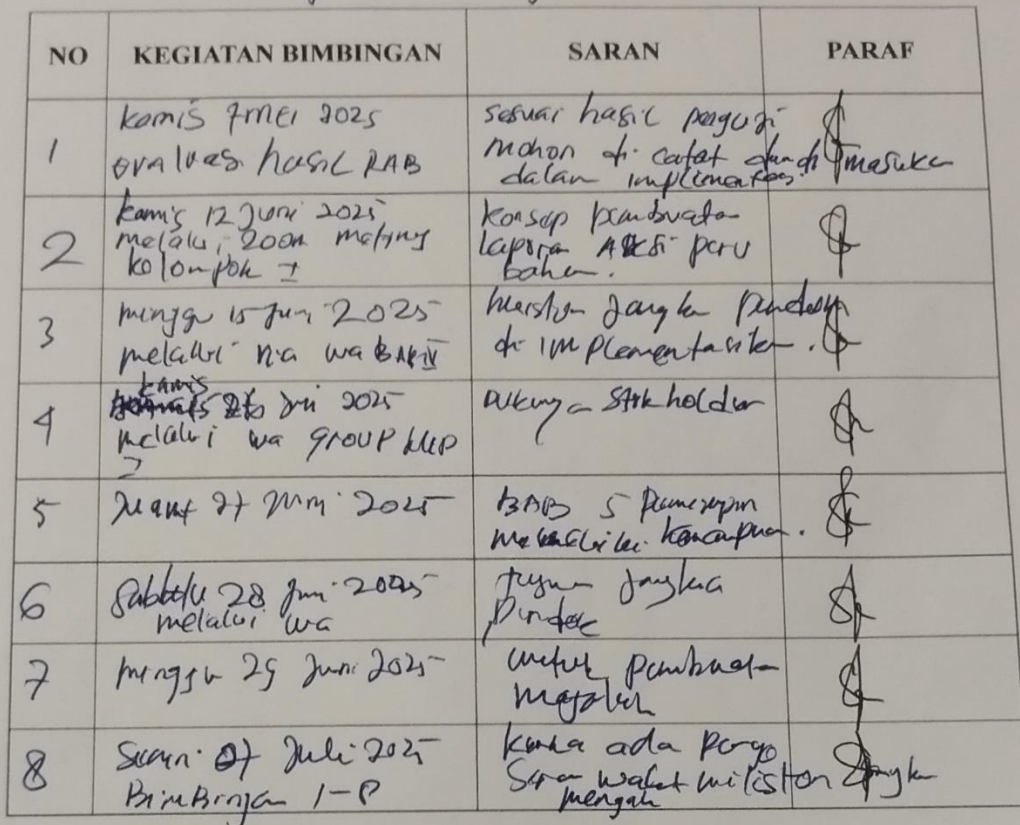 NO KEGIATAN BIMBINGAN SARAN PARAF
1
kamis 7 MEI 2025
evaluasi hasil RAB
sesuai hasil penguji
mohon di catat dan di masuka
dalam implementasi.
2
kamis 12 Juni 2025
melalui zoom meting
kelompok I
konsep pembuata
laporan Aksi peru
bahan.
3
minggu 15 Juni 2025
melalui wa
jangka pendek
di implementasika.
4
kamis 26 Juni 2025
melalui wa GROUP
Stakholder
5
27 Juni 2025
BAB 5
6
Sabtu 28 Juni 2025
melalui wa
tujuan jangka
pendek
7
minggu 29 Juni 2025
untuk pembuata
8
Senin 07 Juli 2025
BimBingan 1-8
karna ada perge
seran waktu milston jangka
mengah